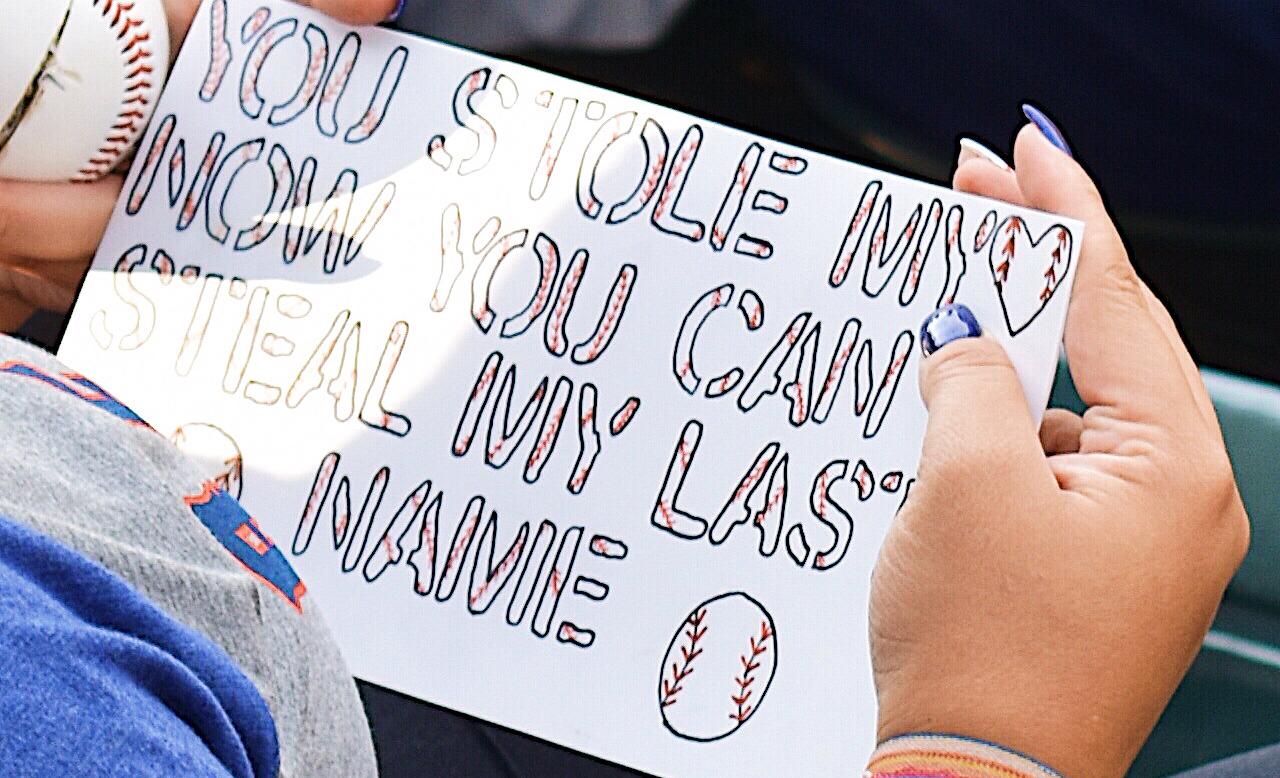 YOU STOLE MY
NOW YOU CAN
STEAL MY LAST
NAME